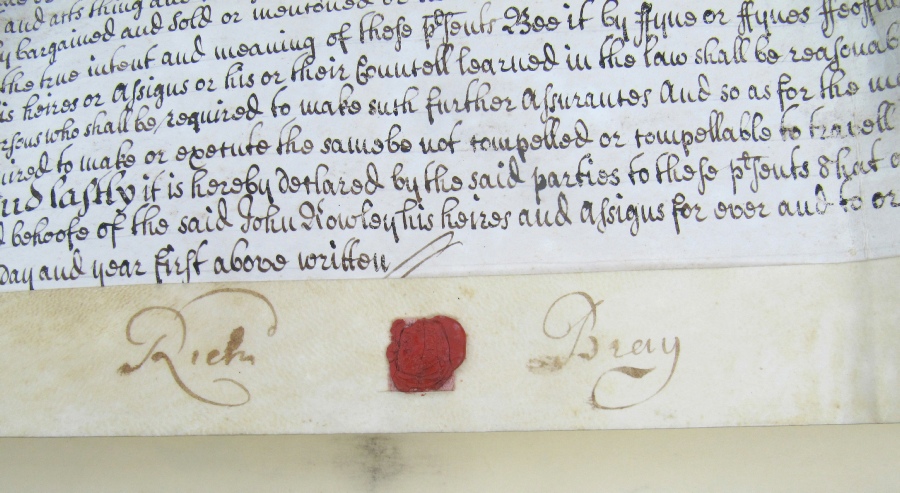 and acts thing and
bargained and sold or mentioned or
the true intent and meaning of these p[re]sents Bee it by ffyne or ffynes ffeoffm
is heires or Assigns or his or their Councell learned in the law shall be reasonab
rsons who shall be required to make such further Assurances And so as for the m
uired to make or execute the same be not compelled or compellable to travell
nd lastly it is hereby declared by the said parties to these p[re]sents That
behoofe of the said John Rowley his heires and Assigns for ever and to
Day and year first above written
Richd Bray